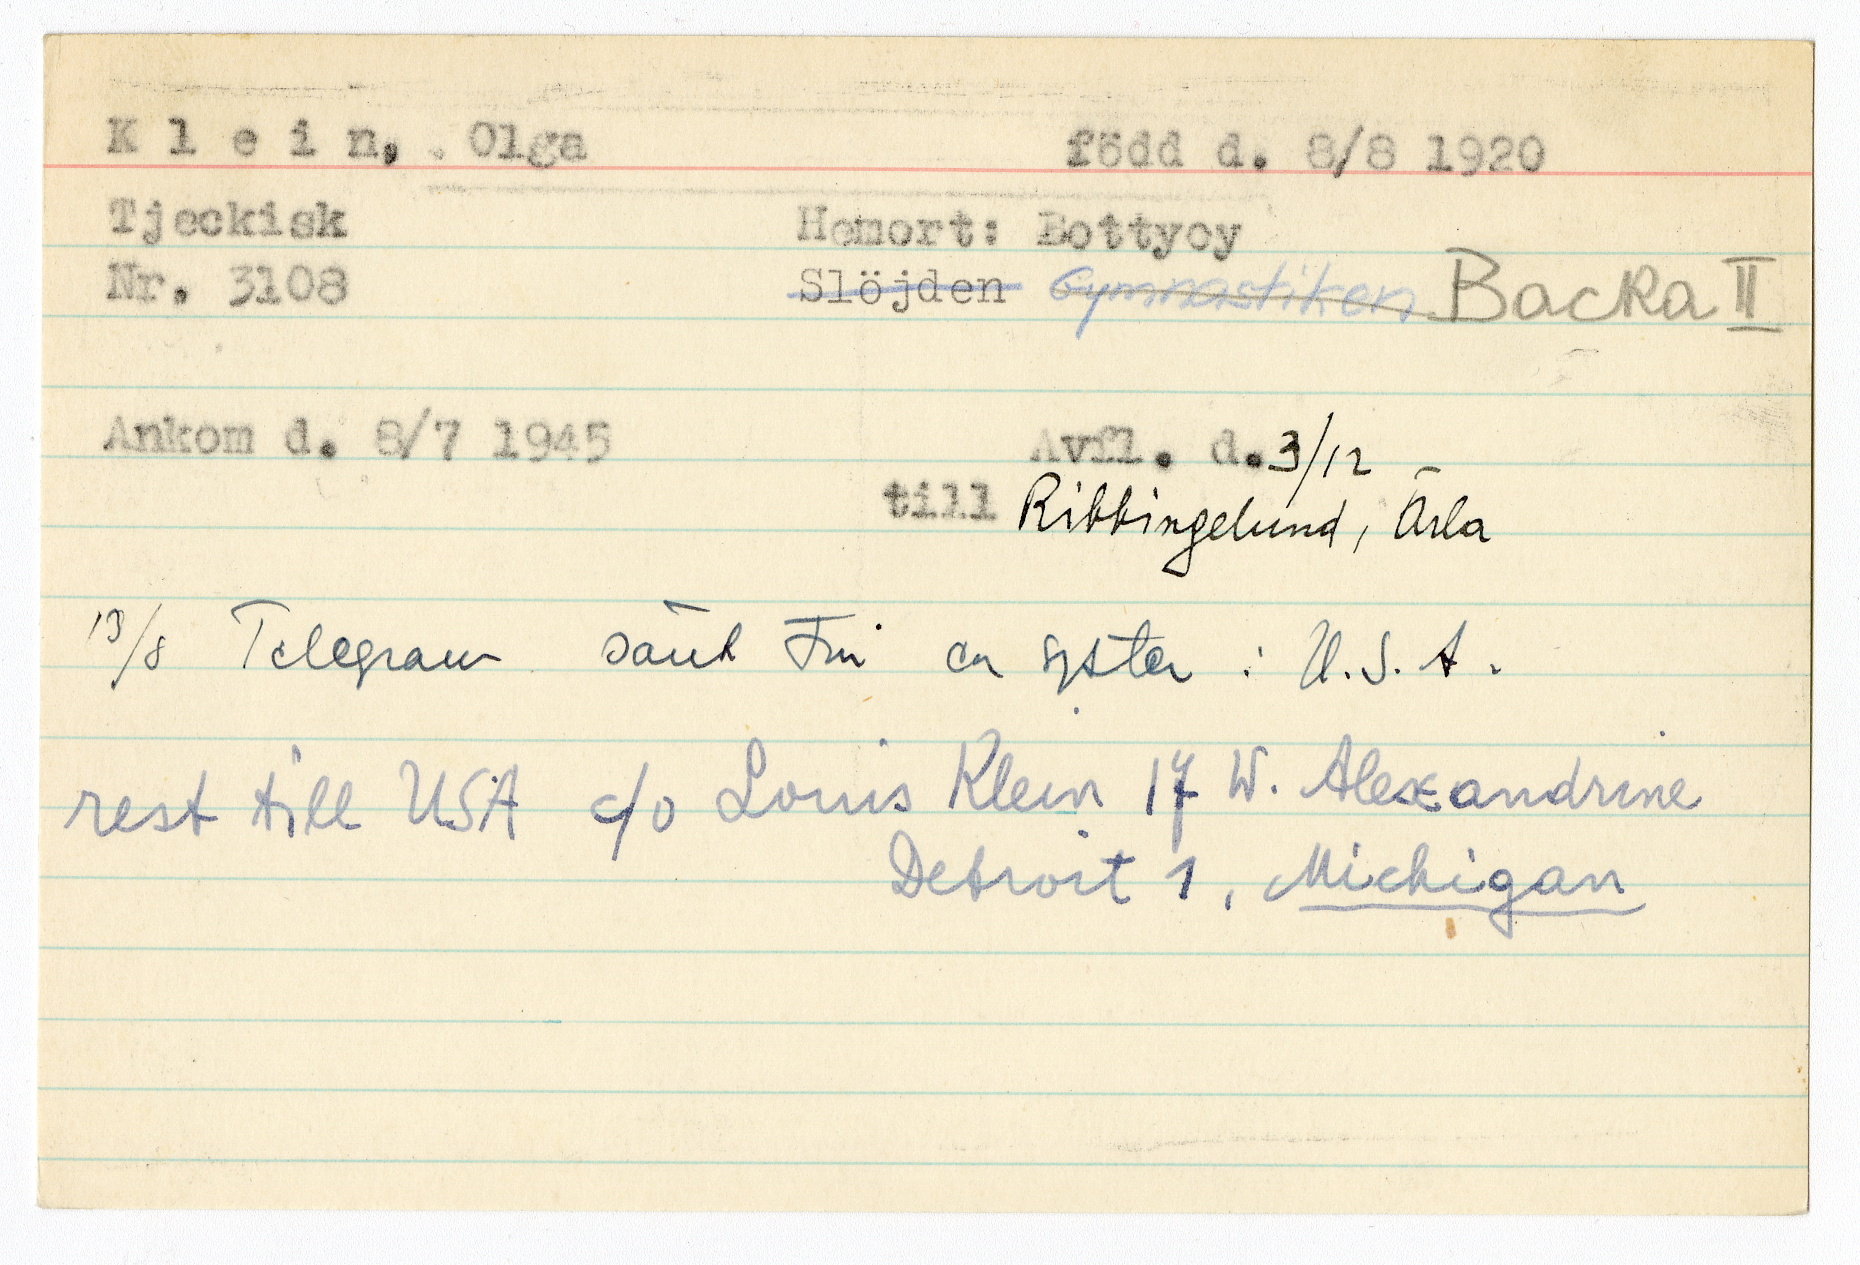 K l e i n, Olga född d. 8/8 1920
Tjeckisk Hemort: Bottyoy
Nr. 3108 Slöjden Gymnastiken Backa II
Ankom d. 8/7 1945 Avfl. d. 3/12
till Ribbingelund, Ärla
13/8 Telegram sänt från en syster i U.S.A.
rest till USA c/o Louis Klein 17 W. Alexandrine
Detroit 1, Michigan